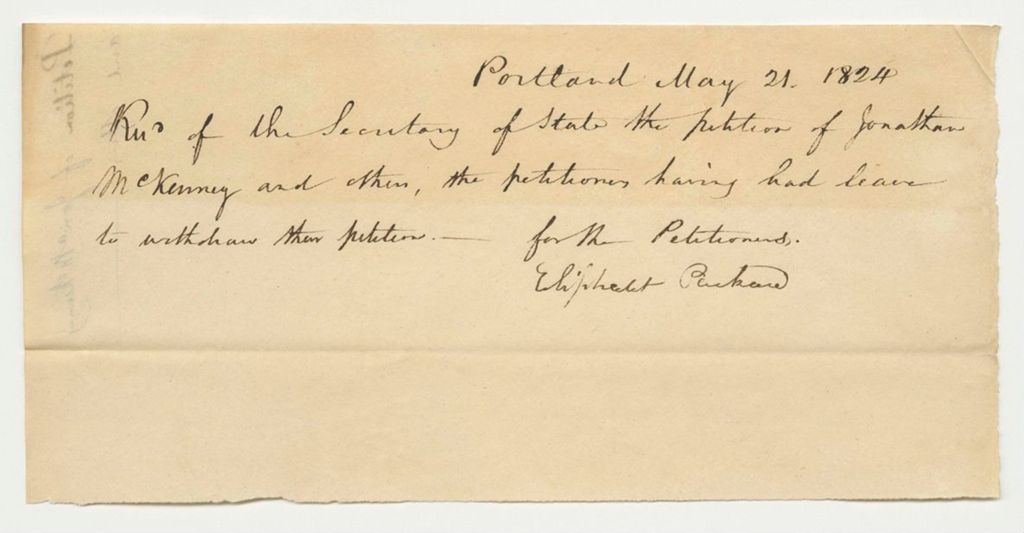 Portland May 21. 1824
Recd of the Secretary of State the petition of Jonathan
McKenney and others, the petitioners having had leave
to withdraw their petition. — for the Petitioners.
Eliphalet Packard